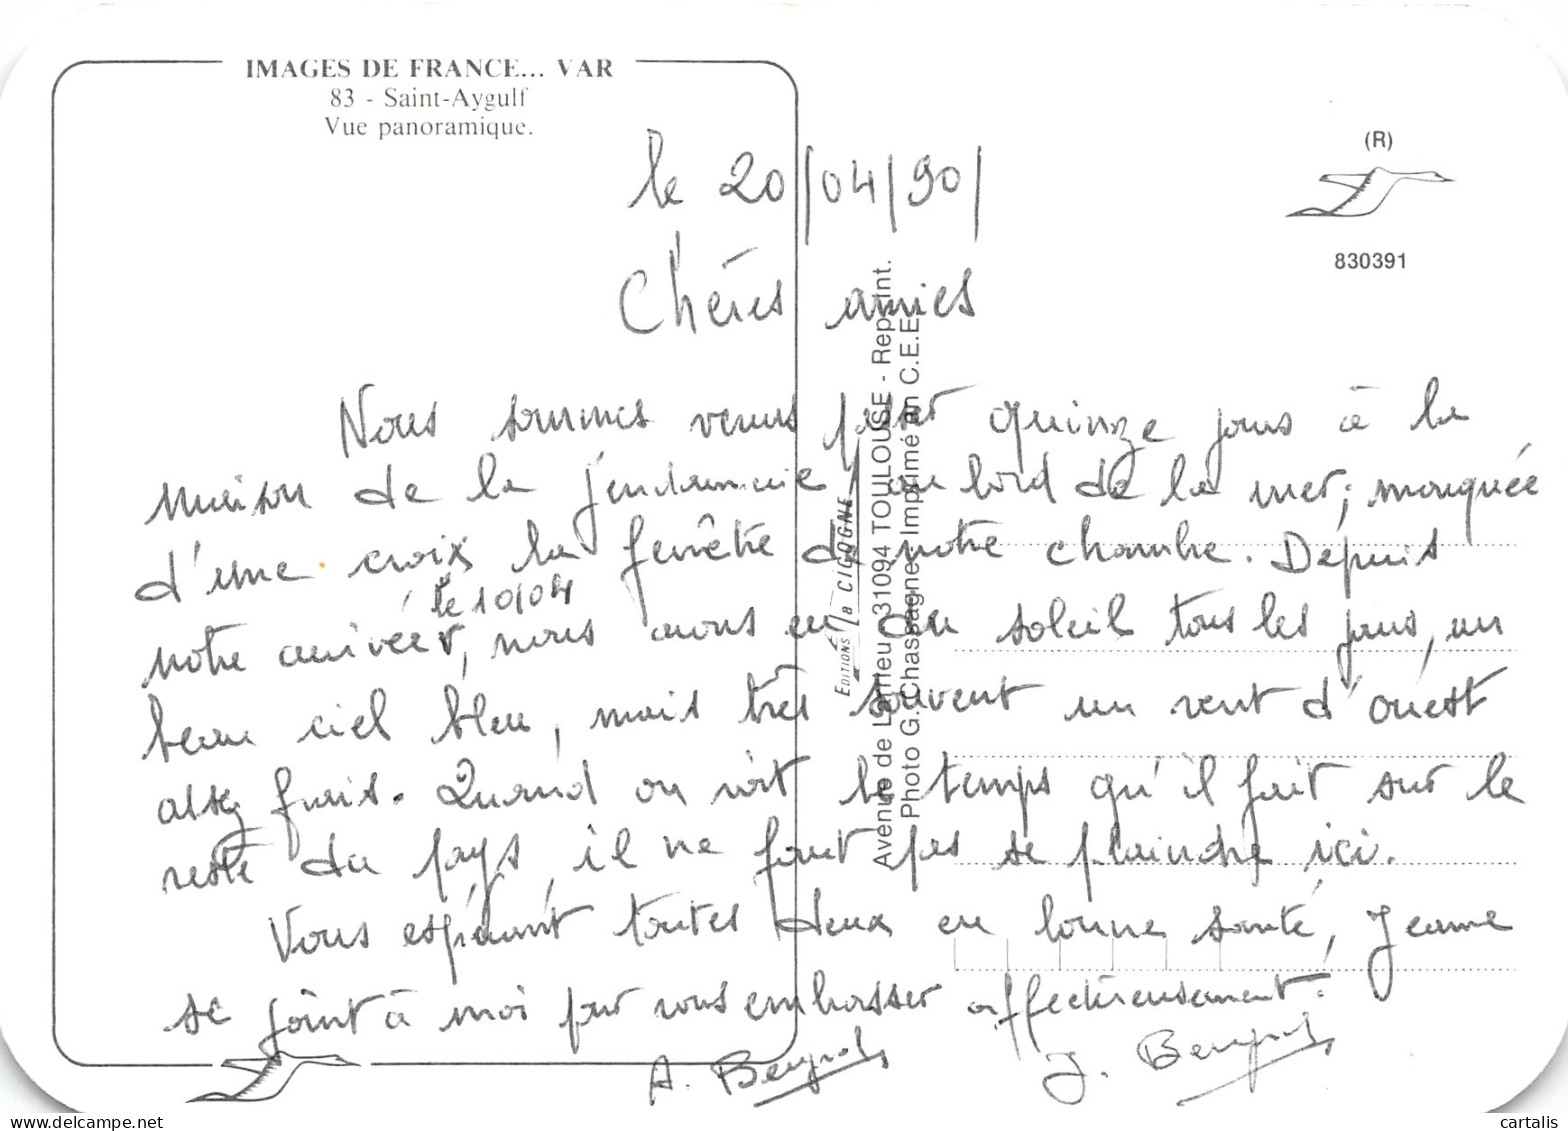 IMAGES DE FRANCE... VAR
83 - Saint-Aygulf
Vue panoramique.
(R)
830391
le 20/04/90/
Chères amies
Nous sommes venus passer quinze jours à la
maison de la gendarmerie au bord de la mer; marquée
d'une croix la fenêtre de notre chambre. Dépuis
le 10/04
notre arrivée, nous avons eu du soleil tous les jours, un
beau ciel bleu, mais très souvent un vent d'ouest
assez frais. Quand on voit le temps qu'il fait sur le
reste du pays, il ne faut pas se plaindre ici.
Vous espérant toutes deux en bonne santé, Jeanne
se joint à moi pour vous embrasser affectueusement.
A. J.
EDITIONS la CIGOGNE
Avenue de 31094 TOULOUSE - Reprint.
Photo G. Chassagne. Imprimé en C.E.E.
delcampe.net
cartalis